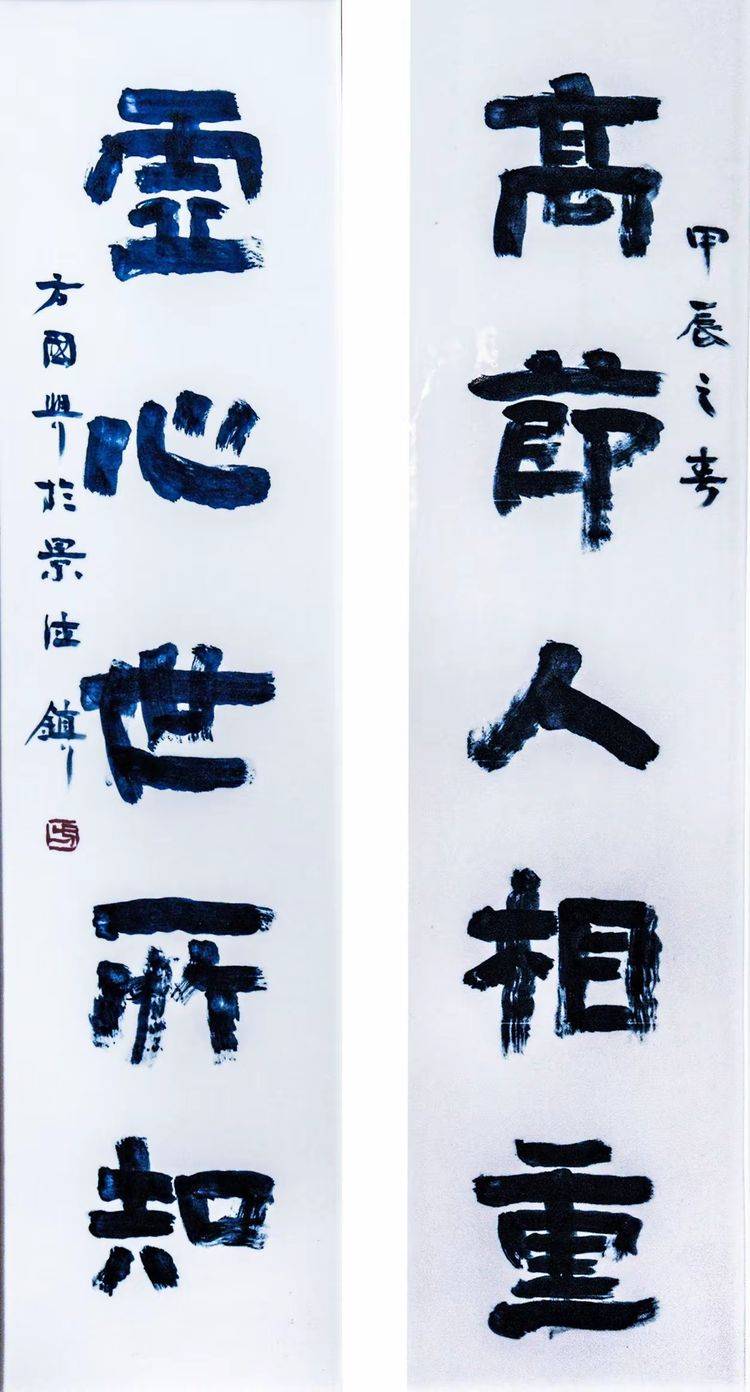 甲辰之春
高節人相重
虛心世所知
方國興於景德鎮